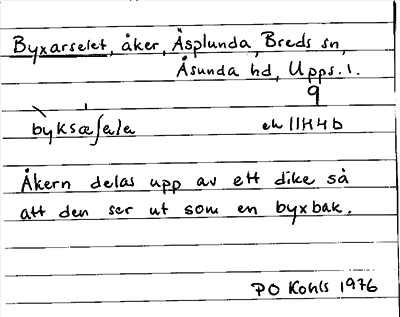 Byxarselet, åker, Äsplunda, Breds sn,
Åsunda hd, Upps. l.
9
byksæʃele
ek 11H4b
Åkern delas upp av ett dike så
att den ser ut som en byxbak.
PO Kohls 1976